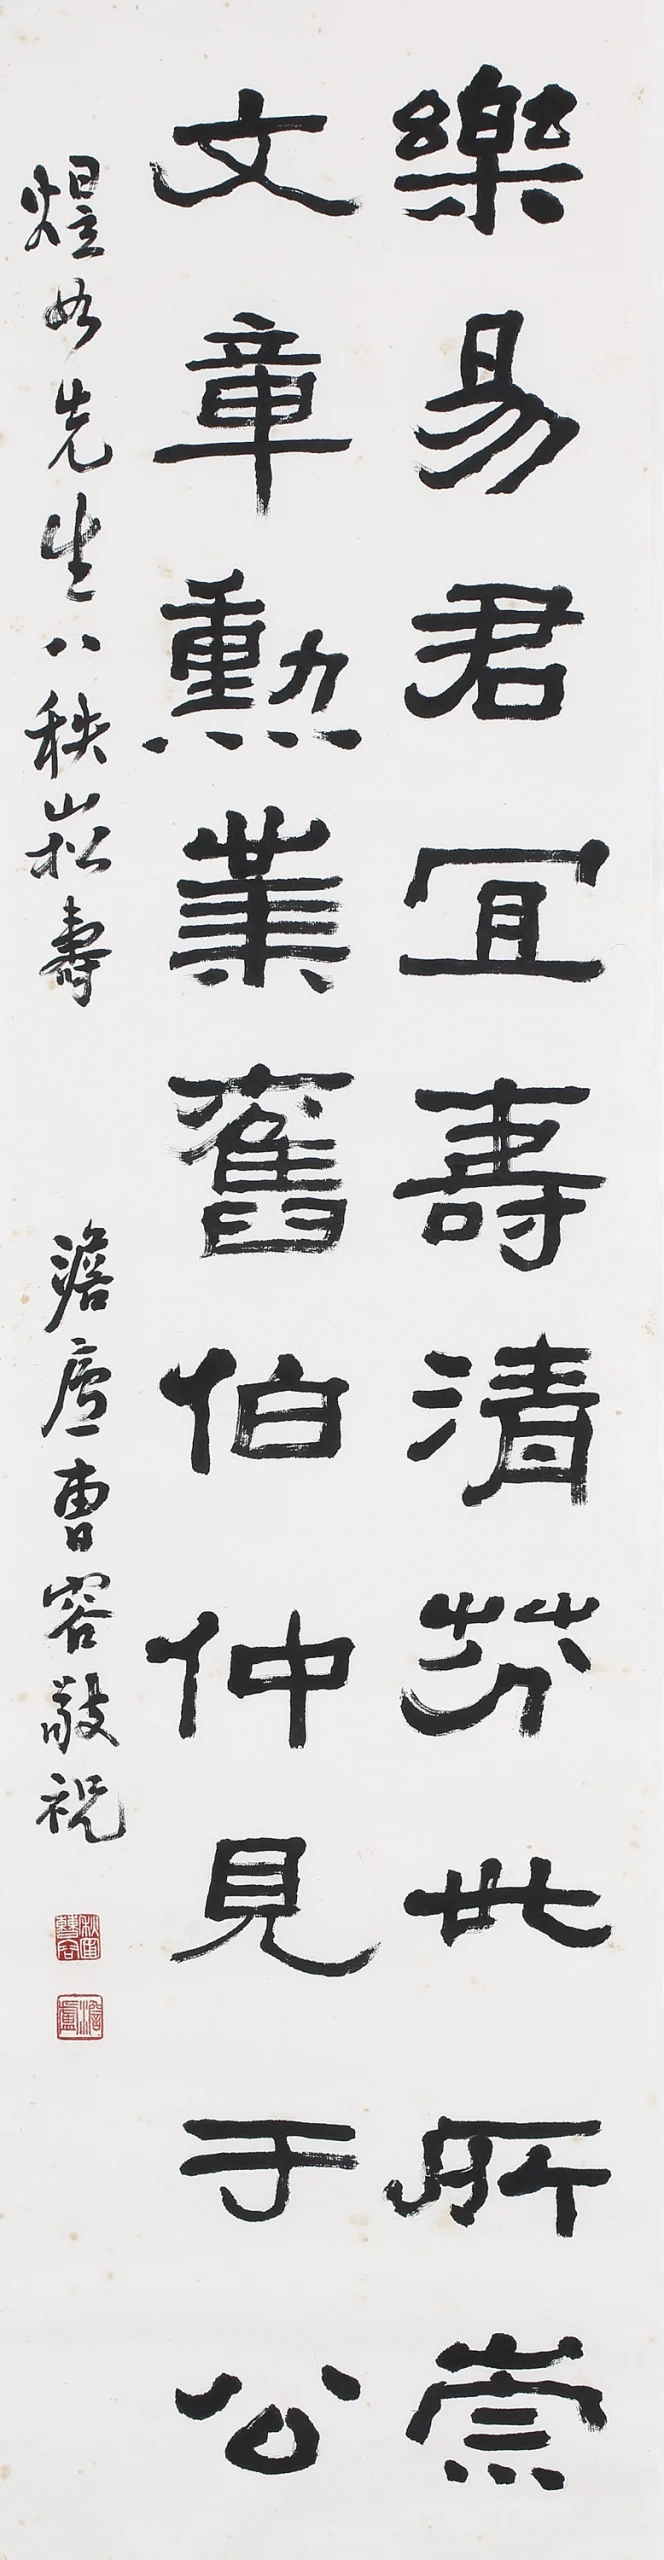 樂易君宜壽清芬世所崇
文章勳業舊伯仲見于公
煜如先生八秩崧壽
澹廬曹容敬祝
澹廬